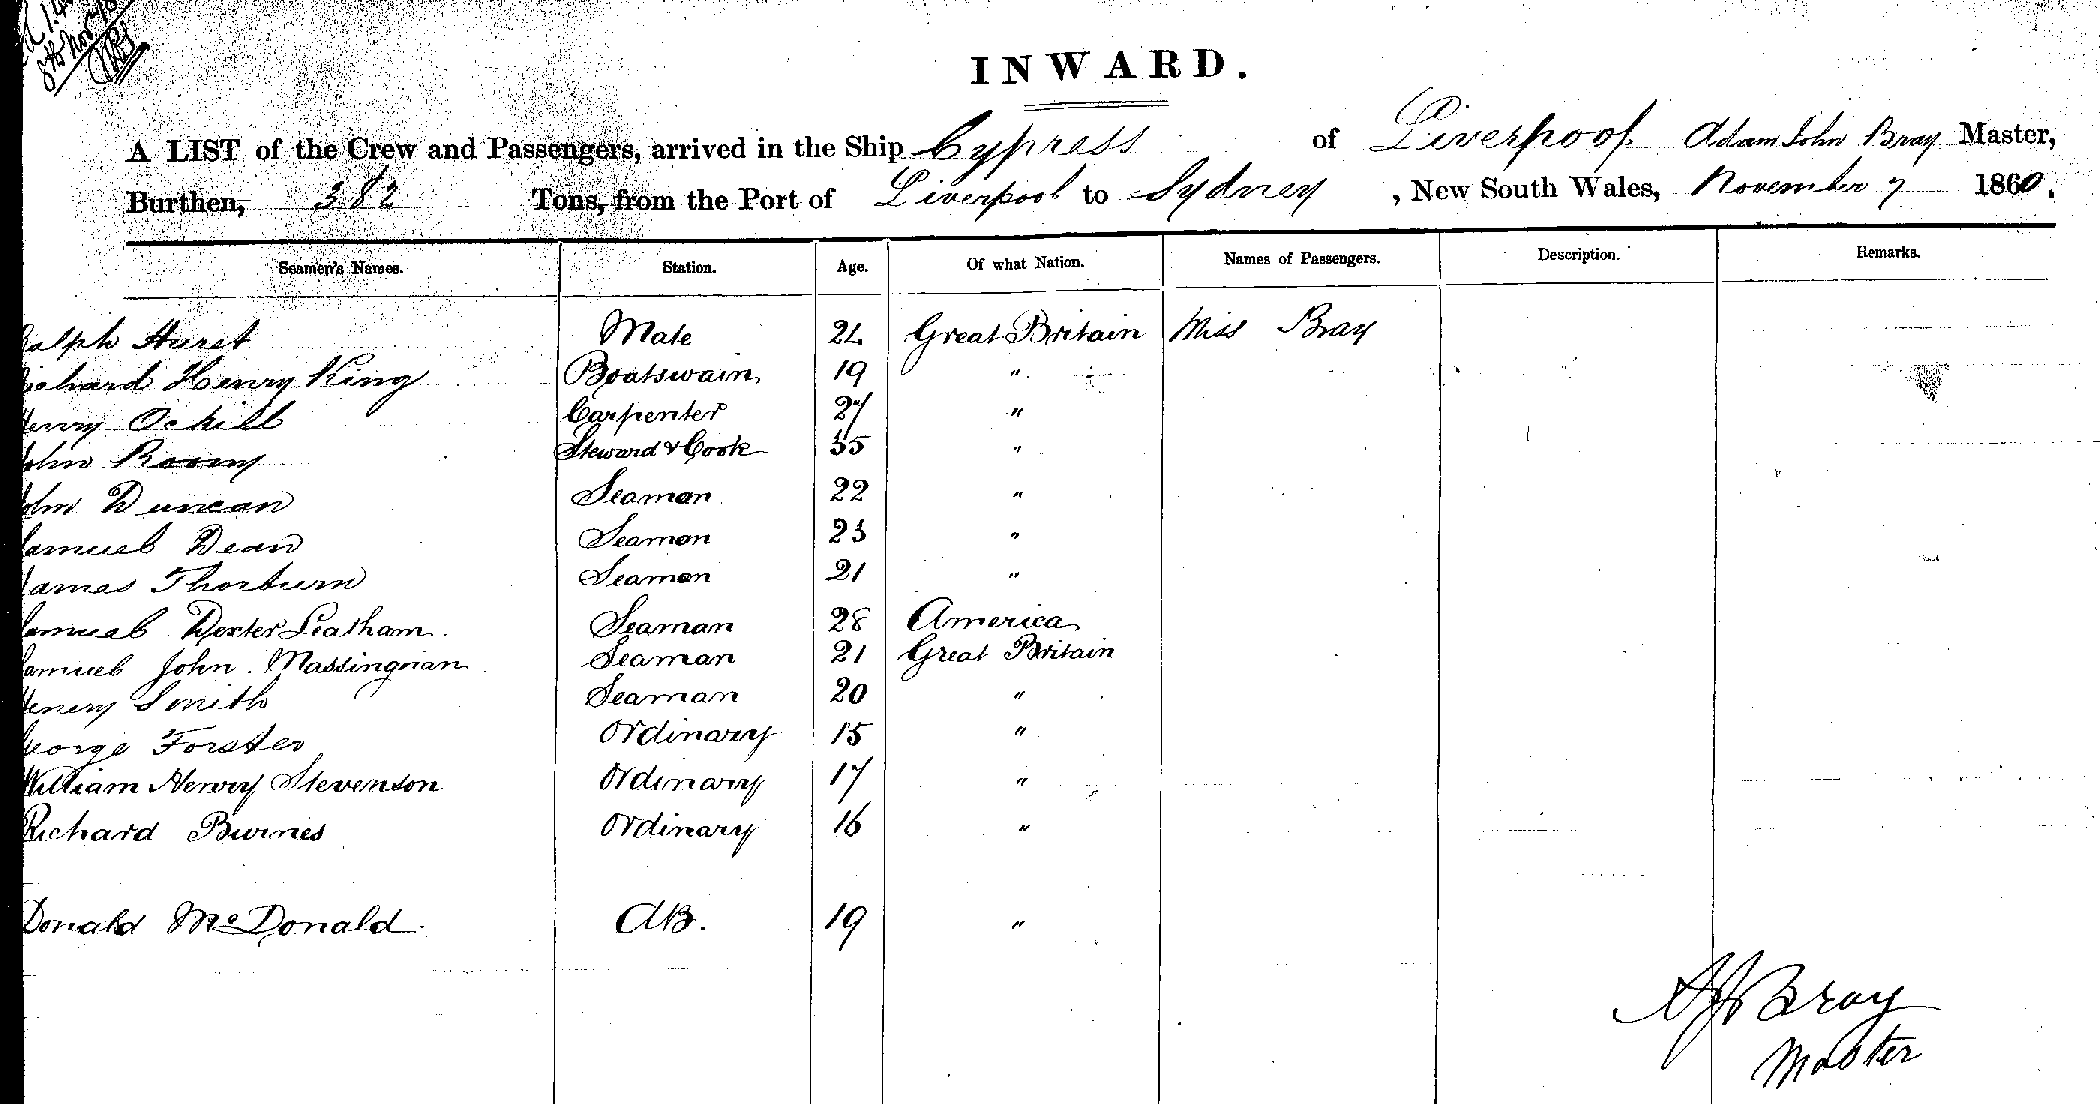 8th Nov
INWARD.
A LIST of the Crew and Passengers, arrived in the Ship Cypress of Liverpool Adam John Bray Master,
Burthen, 382 Tons, from the Port of Liverpool to Sydney, New South Wales, November 7 1860.
Seamen's Names. Station. Age. Of what Nation. Names of Passengers. Description. Remarks.
alph Hurst Mate 24 Great Britain Miss Bray
ichard Henry King Boatswain 19 "
enry Ockill Carpenter 27 "
ohn Steward & Cook 35 "
ohn Duncan Seaman 22 "
amuel Dean Seaman 23 "
James Thorburn Seaman 21 "
Samuel Dexter Leatham. Seaman 28 America
amuel John Seaman 21 Great Britain
Henery Smith Seaman 20 "
George Forster Ordinary 15 "
William Henry Stevenson Ordinary 17 "
Richard Burnes Ordinary 16 "
Donald McDonald AB. 19 "
AJ Bray
Master